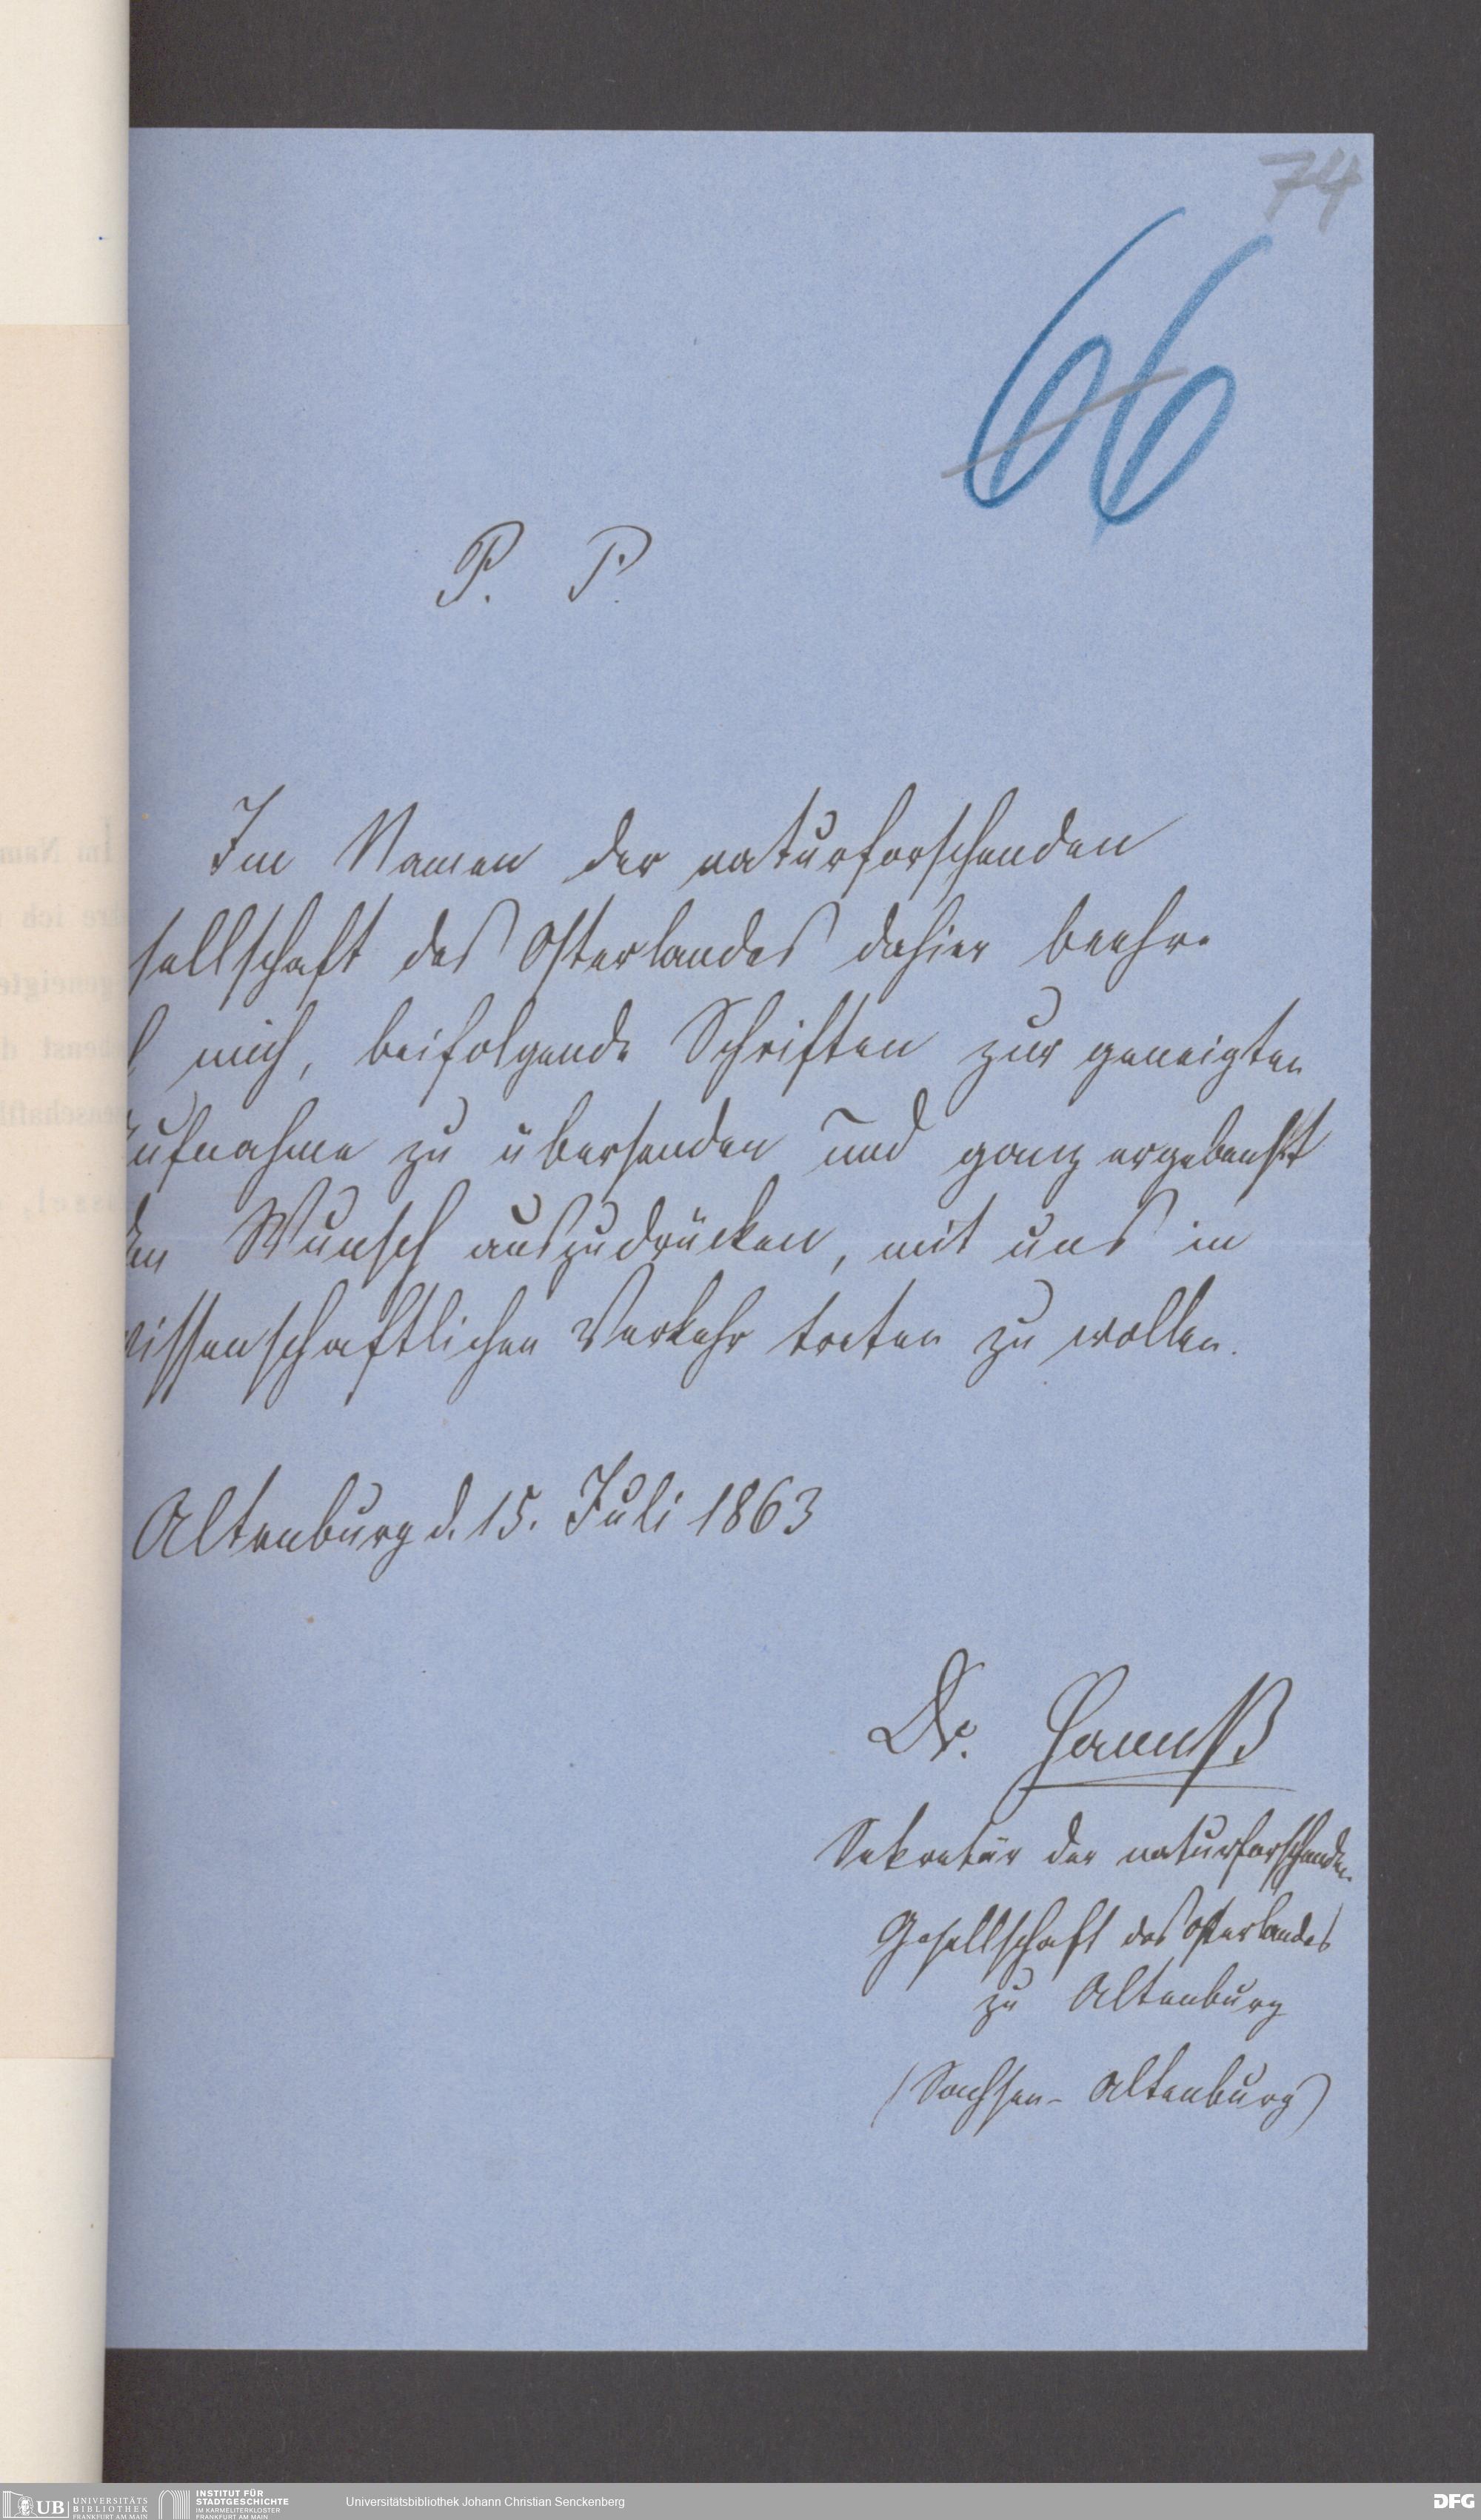 74
66
P. P.
Im Namen der naturforschenden
sellschaft des Osterlandes dahier beehre
mich, beifolgende Schriften zur geneigten
ufnahme zu übersenden und ganz ergebenst
den Wunsch auszudrücken, mit uns in
wissenschaftlichen Verkehr treten zu wollen.
Altenburg d. 15. Juli 1863
Dr.
Sekretär der naturforschenden
Gesellschaft des Osterlandes
zu Altenburg
(Sachsen-Altenburg)
UB UNIVERSITÄTS
BIBLIOTHEK
FRANKFURT AM MAIN
INSTITUT FÜR
STADTGESCHICHTE
IM KARMELITERKLOSTER
FRANKFURT AM MAIN
Universitätsbibliothek Johann Christian Senckenberg
DFG